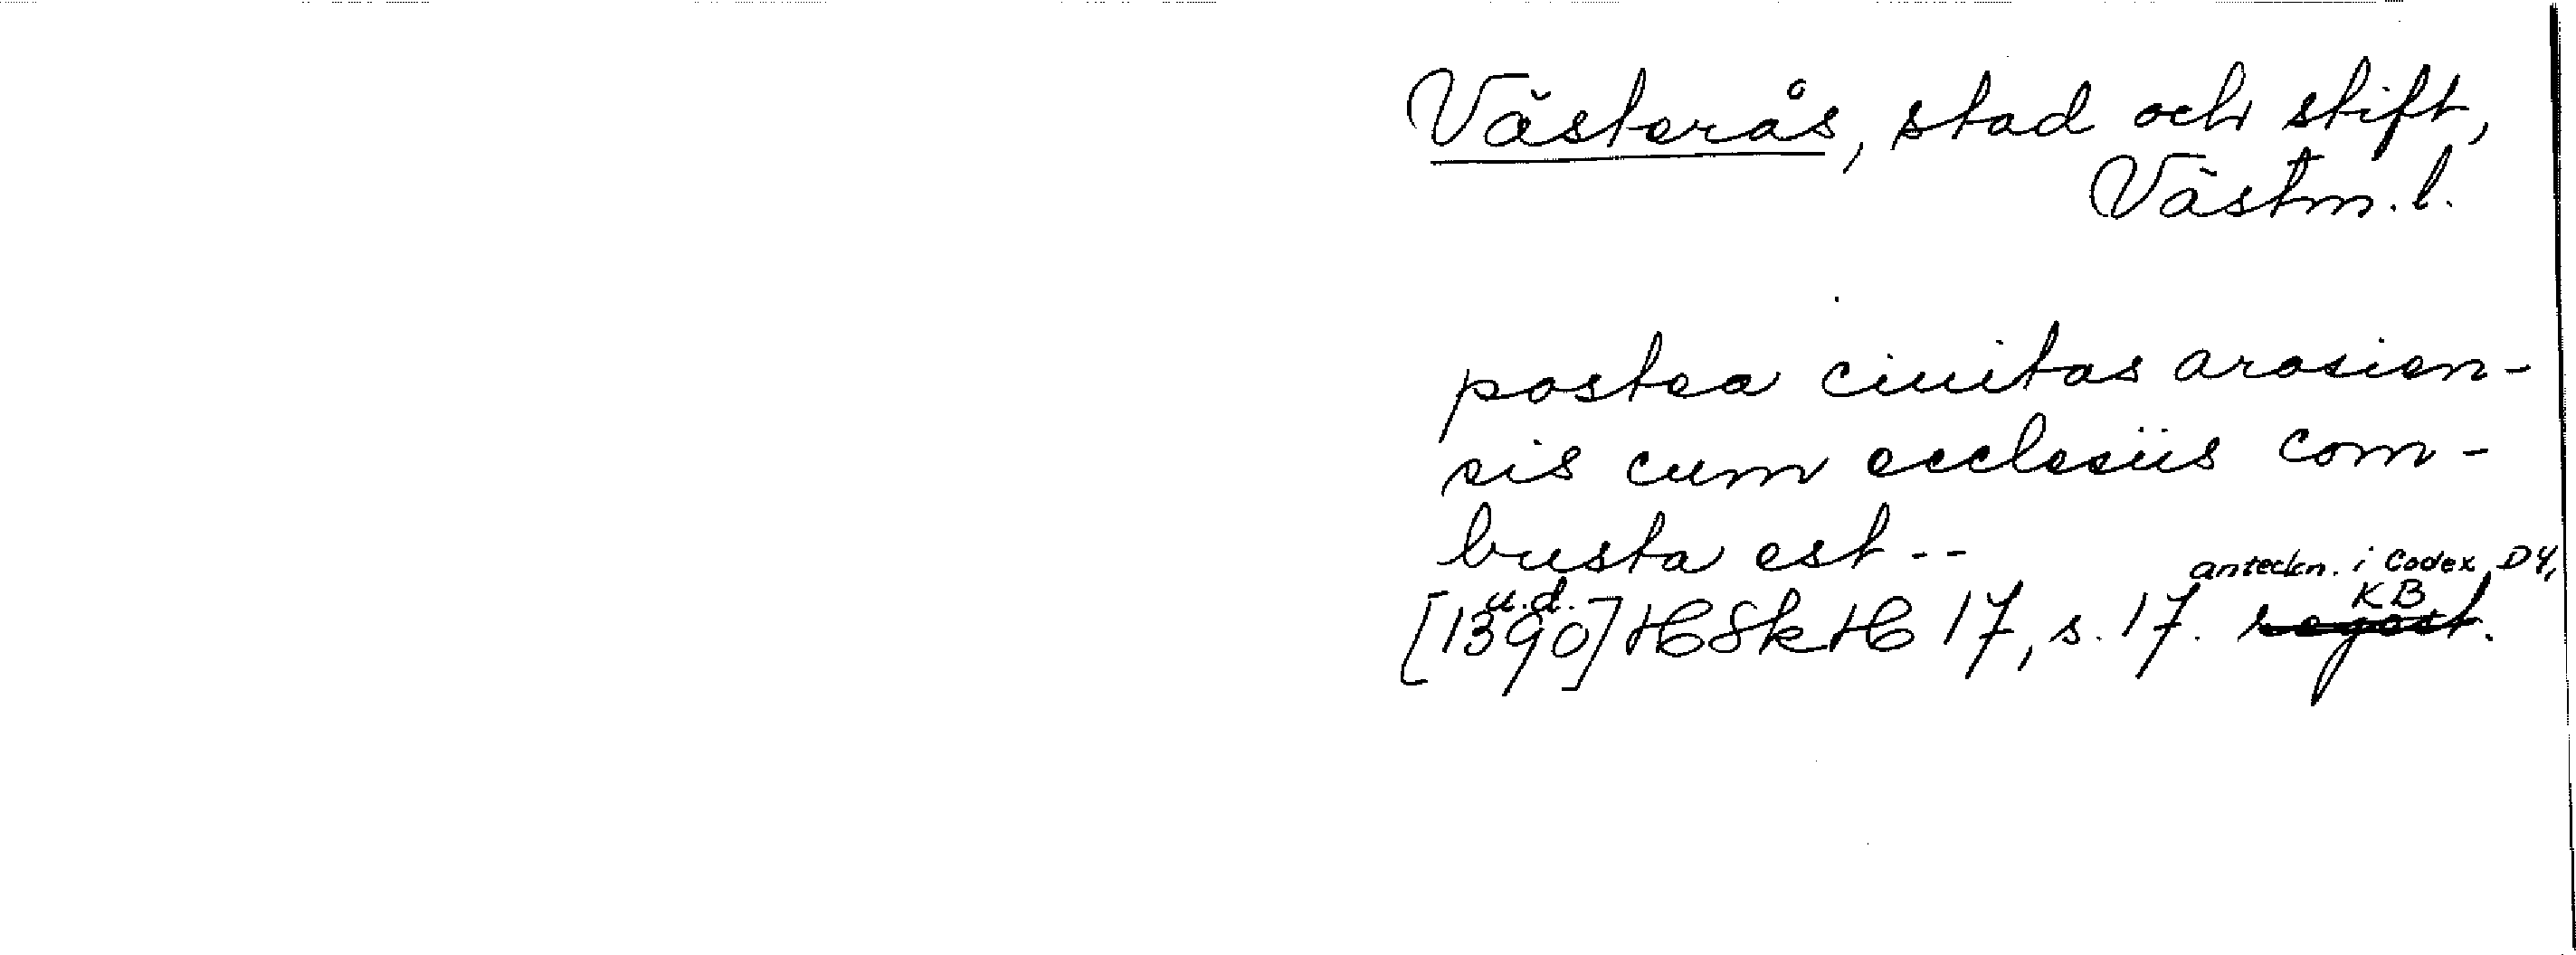 Västerås, stad och stift,
Västm.l.
postea ciuitas arosien-
sis cum ecclesiis com-
busta est --
anteckn. i Codex D4,
u.d. KB
[1390] HSkH 17, s. 17. regest.